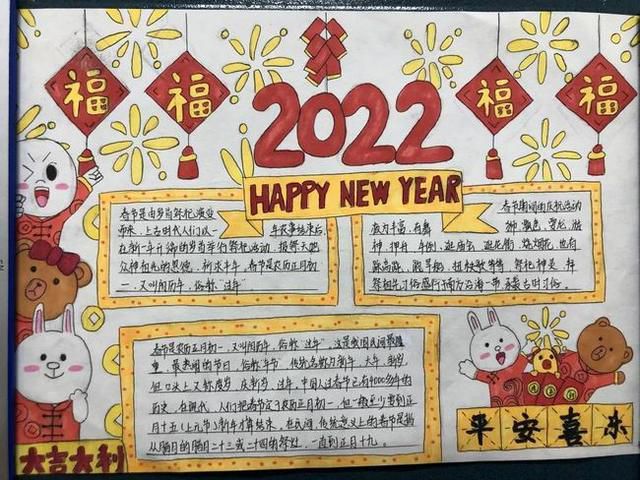 福
福
福
福
2022
HAPPY NEW YEAR
春节是由岁首祭祀演变
而来，上古时代人们以一
年农事结束后，
在新一年开端的岁首举行祭祀活动，报祭天地
众神和祖先的恩德，祈求丰年，春节是农历正月初
一，又叫阴历年，俗称"过年"
春节期间的庆祝活动
极为丰富，有舞
狮、飘色、舞龙、游
神、押舟、年例、逛庙会、逛花街、烧烟花，也有
踩高跷、跑旱船、扭秧歌等等，祭祀神灵、拜
春节是农历正月初一，又叫阴历年，俗称"过年"这是我国民间最隆
重、最热闹的节日，俗称"年节"传统名称为新年、大年、新岁
但口头上又称度岁、庆新岁、过年，中国人过春节已有4000多年的
历史，在现代，人们把春节定于农历正月初一，但一般至少要到正
月十五（上元节）新年才算结束，在民间，传统意义上的春节是指
从腊月的腊月二十三或二十四的祭灶，一直到正月十九。
大吉大利
平安喜乐